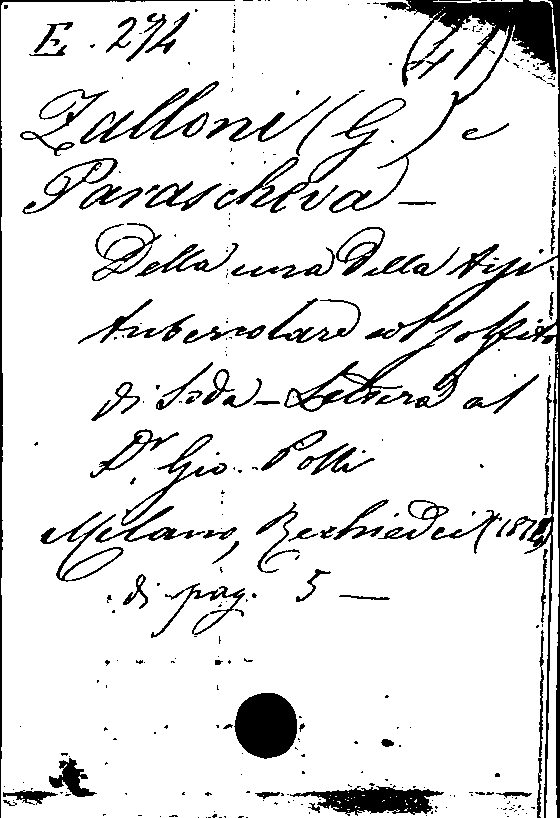 E. 274 (41)
Zalloni (G.) e
Parascheva —
Della cura della tisi
tubercolare col solfito
di Soda — Lettera al
Dr. Gio. Polli
Milano, Rechiedei (187
di pag. 5 —